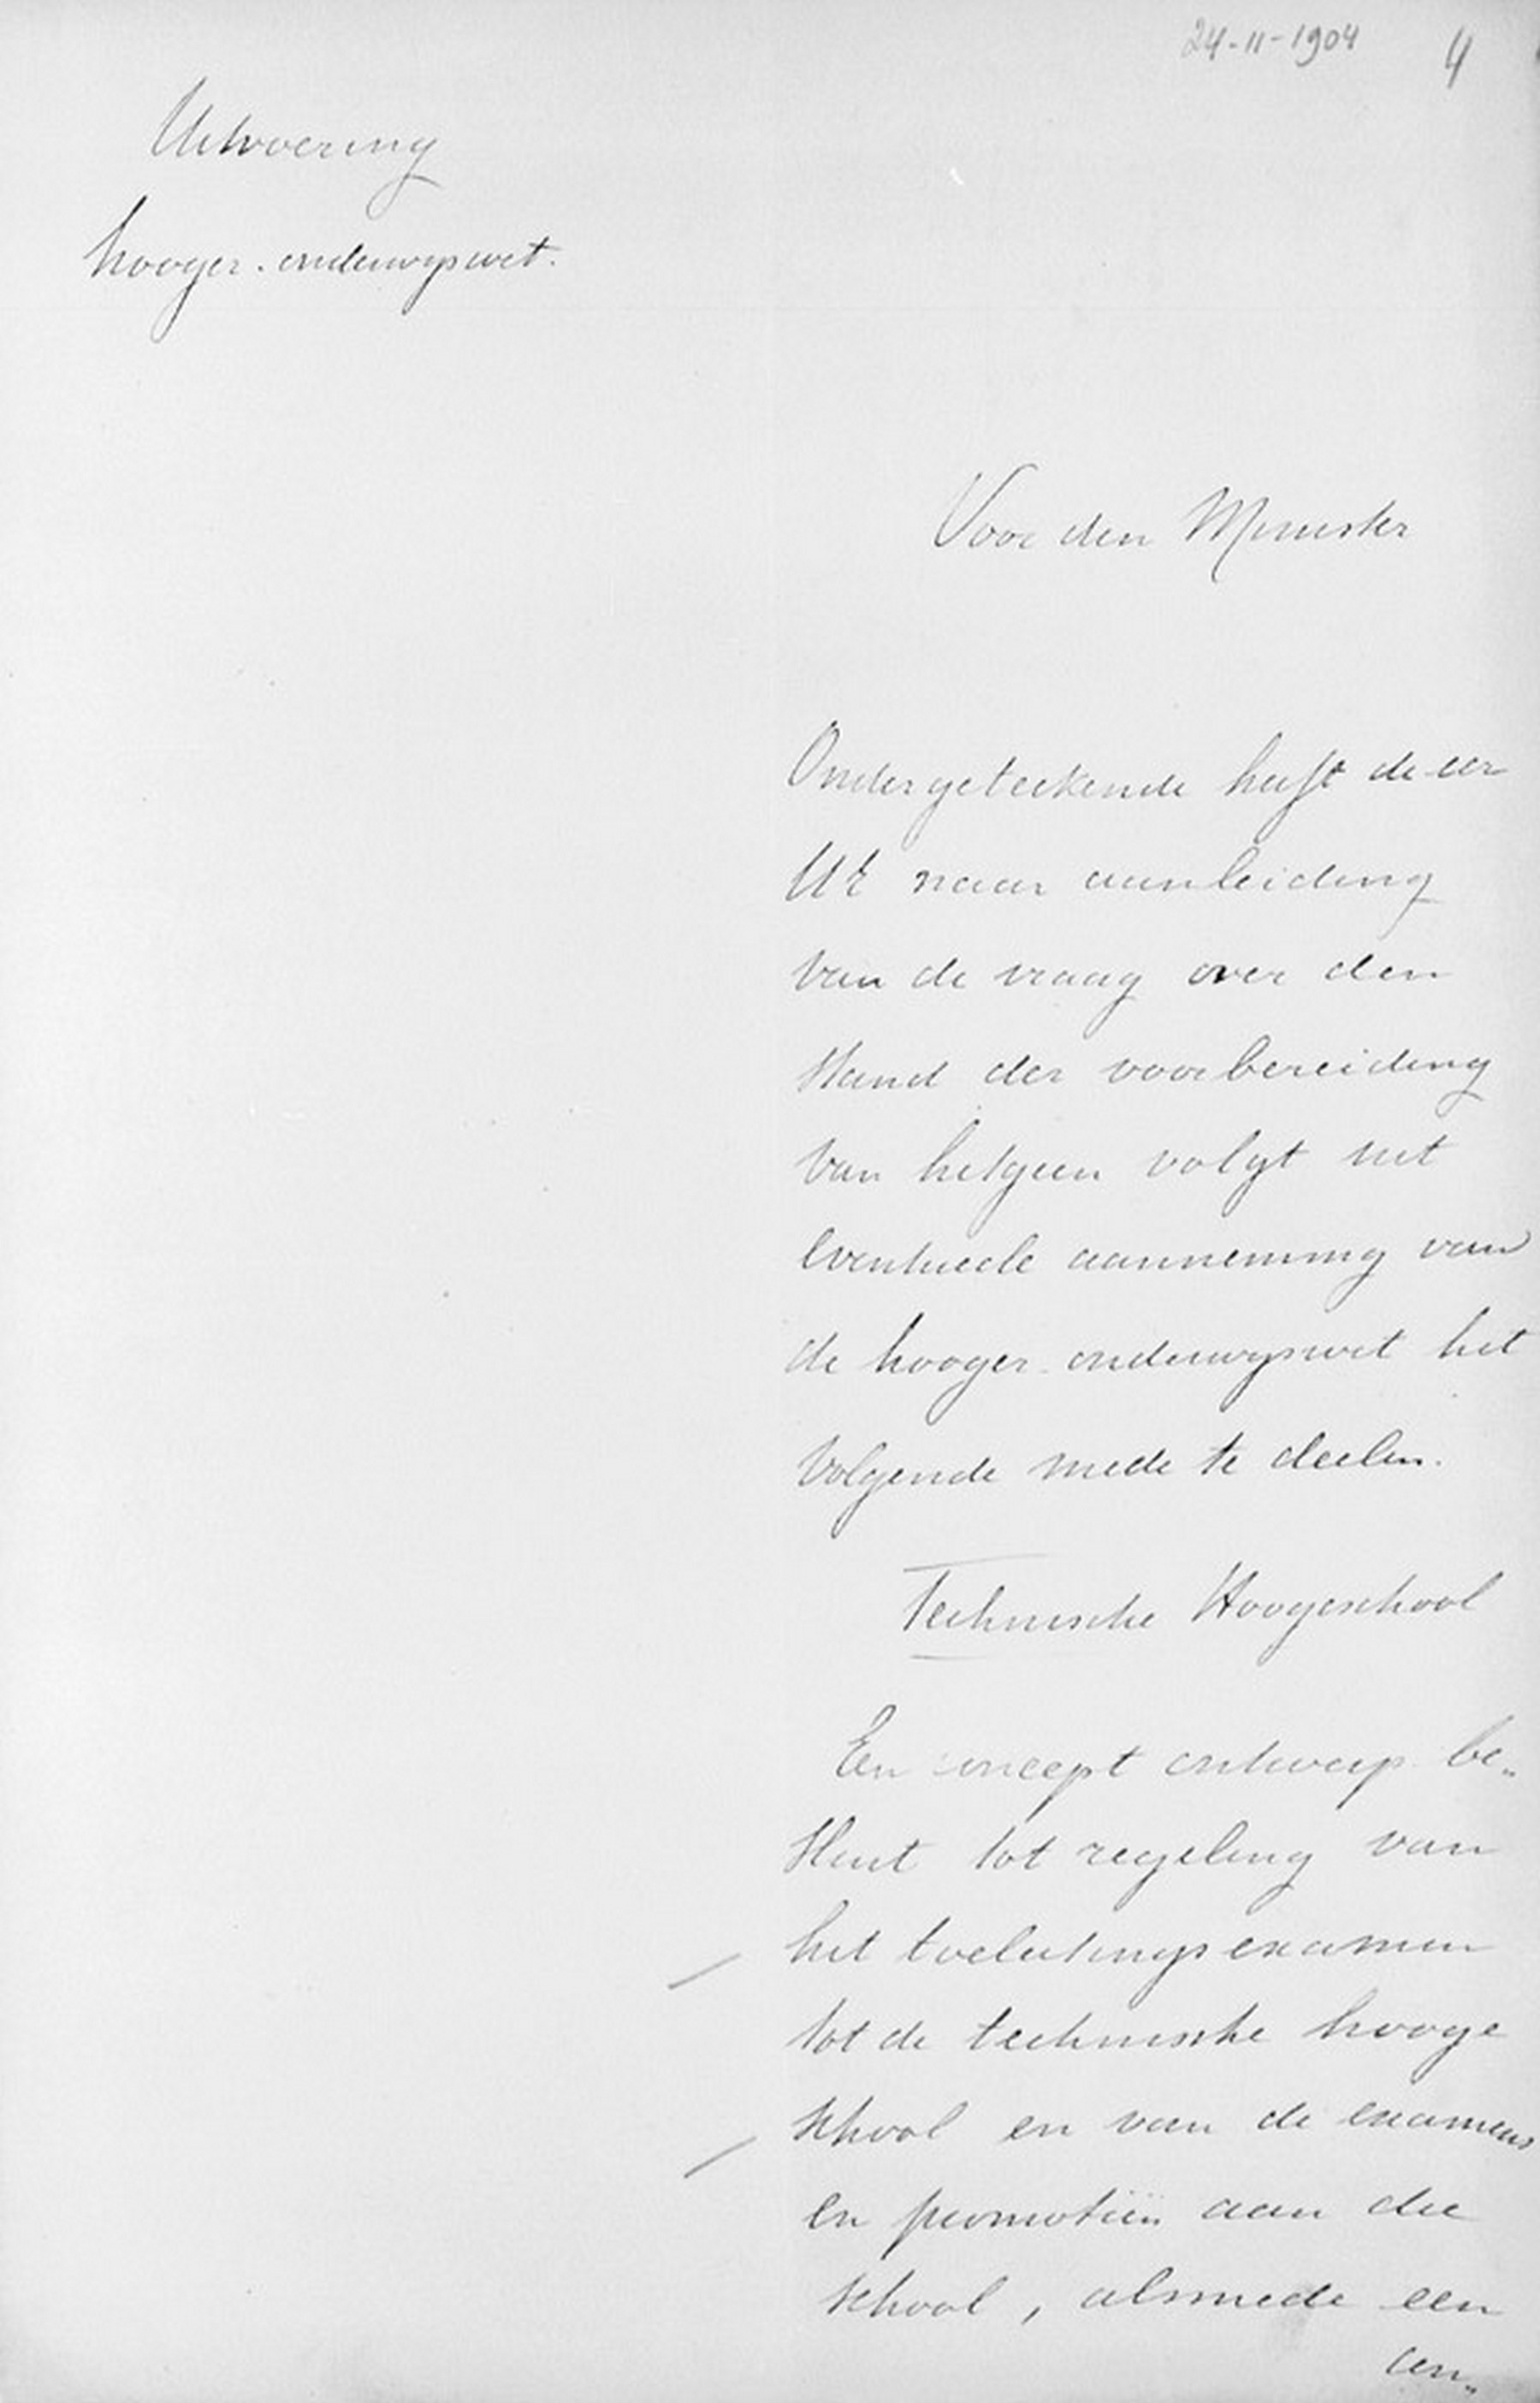 24-11-1904 4
Uitvoering
hooger-onderwijswet.
Voor den Minister
Ondergeteekende heeft de eer
UE naar aanleiding
van de vraag over den
stand der voorbereiding
van hetgeen volgt uit
eventueele aanneming van
de hooger-onderwijswet het
volgende mede te deelen.
Technische Hoogeschool
Een concept ontwerp be„
sluit tot regeling van
het toelatingsexamen
tot de technische hooge
school en van de examens
en promotiën aan die
school, alsmede een
con„